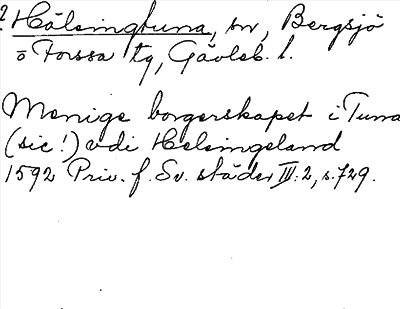 ? Hälsingtuna, sn, Bergsjö
o Forssa tg, Gävleb. l.
Menige borgerskapet i Tuna
(sic!) vdi Helsingeland
1592 Priv. f. Sv. städer III:2, s. 729.